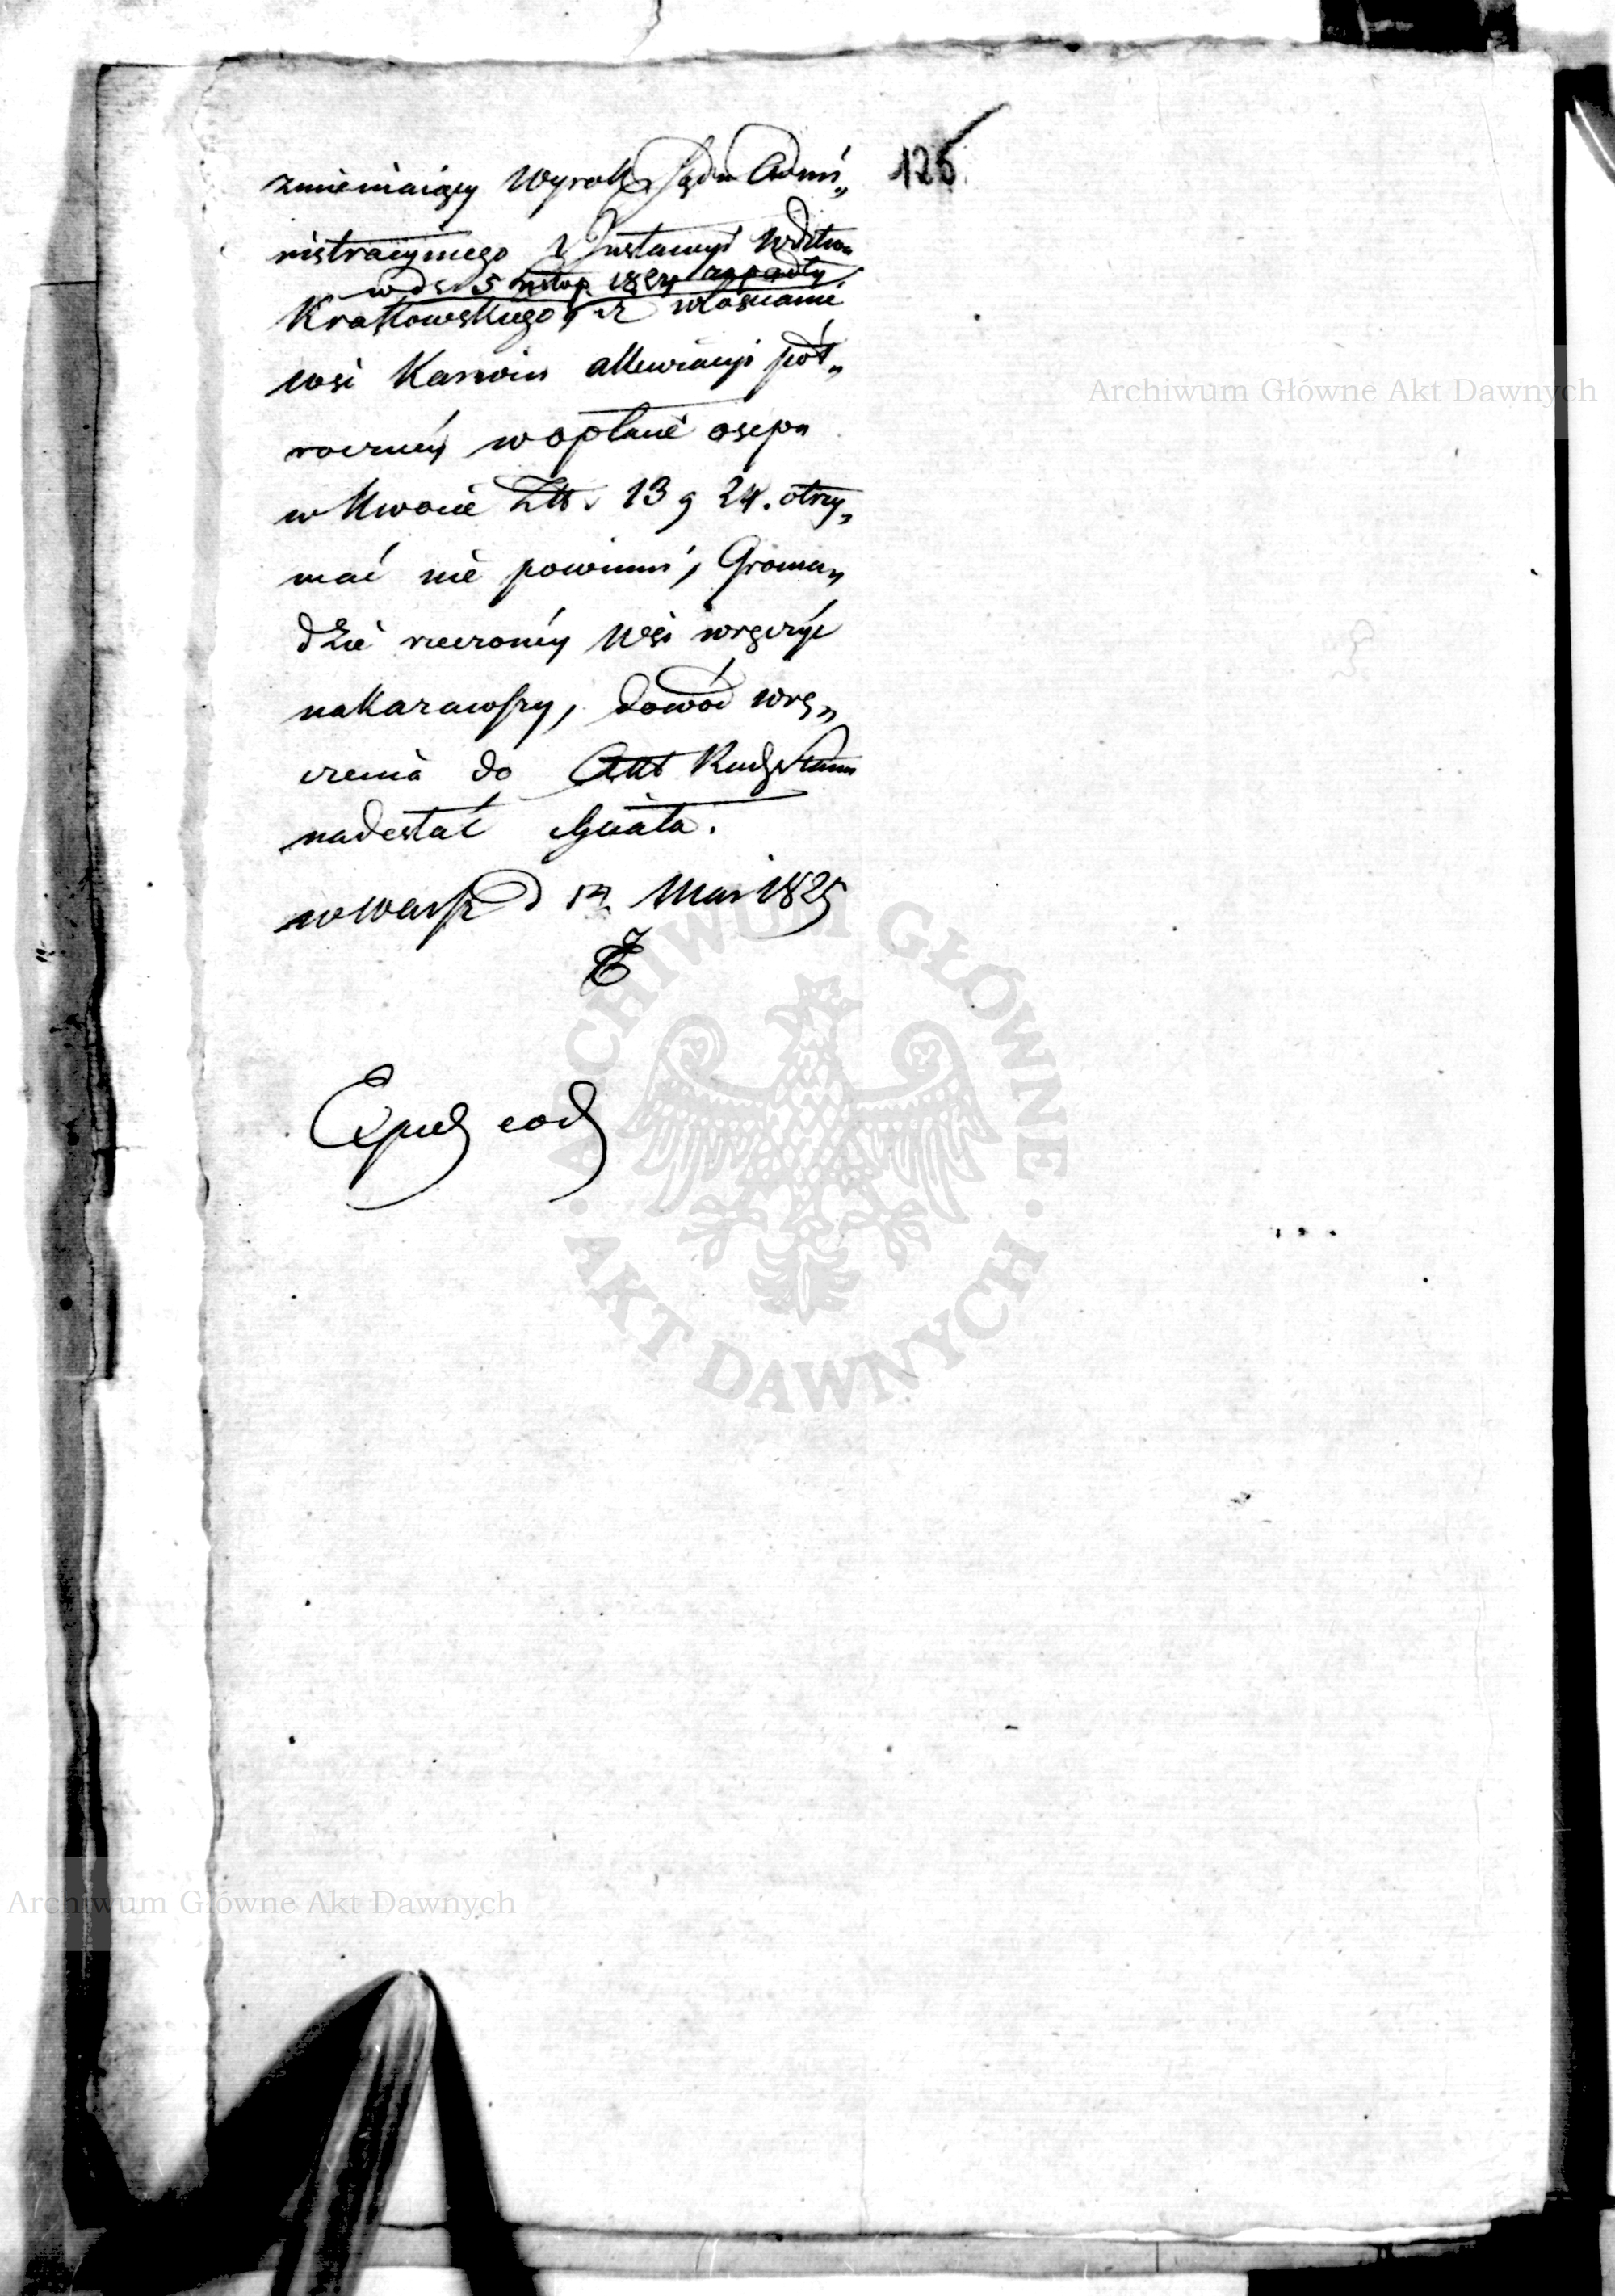 125
zmieniaiący Wyrok Sądu Admi„
nistracyinego I Instancyi Wdztwa
w d. 5 listop. 1824 zapadły
Krakowskiego, iż włościanie
wsi Karwin allewiacyi pół„
roczney w opłacie osepu
w kwocie Złt. 13 g 24. otrzy„
mać nie powinni, Groma„
dzie rzeczoney Wsi wręczyć
nakazawszy, dowód wrę„
czenia do Akt
nadesłać
w Warsz d 14 Mai 1825
Exped eod
Archiwum Główne Akt Dawnych
ARCHIWUM GŁÓWNE AKT DAWNYCH
Archiwum Główne Akt Dawnych